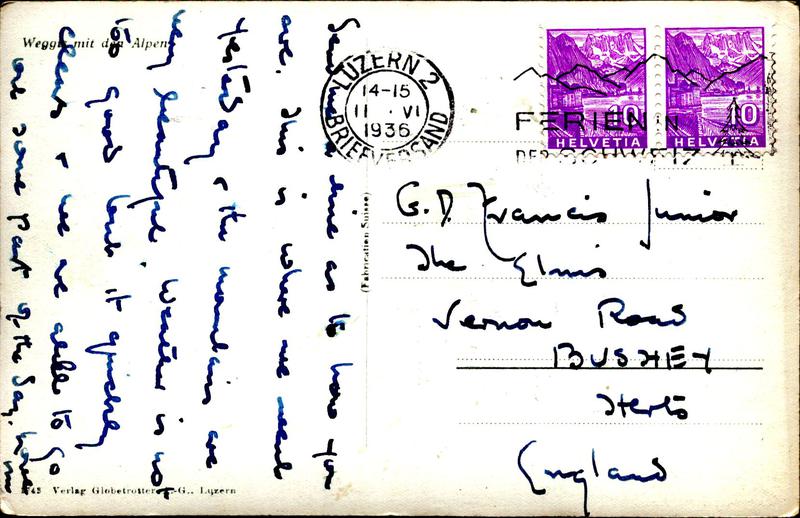 Weggis mit den Alpen
Send me a line as to how you
are. This is where we went
yesterday & the mountains are
very beautiful. Weather is not
too good but it quickly
clears & we are able to go
out some part of the day.
LUZERN 2
14-15
11 · VI
1936
BRIEFVERSAND
FERIEN IN
DER SCHWEIZ
10
HELVETIA
10
HELVETIA
(Fabrication Suisse)
G. D. Francis Junior
The Elms
Vernon Road
BUSHEY
Herts
England
Verlag Globetrotter A.-G., Luzern